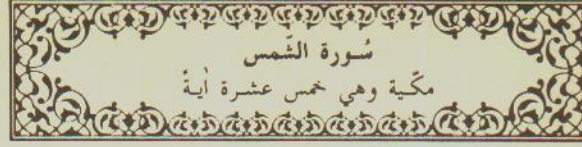 سُورة الشّمس
مكّية وهي خمس عشرة اٰيةً